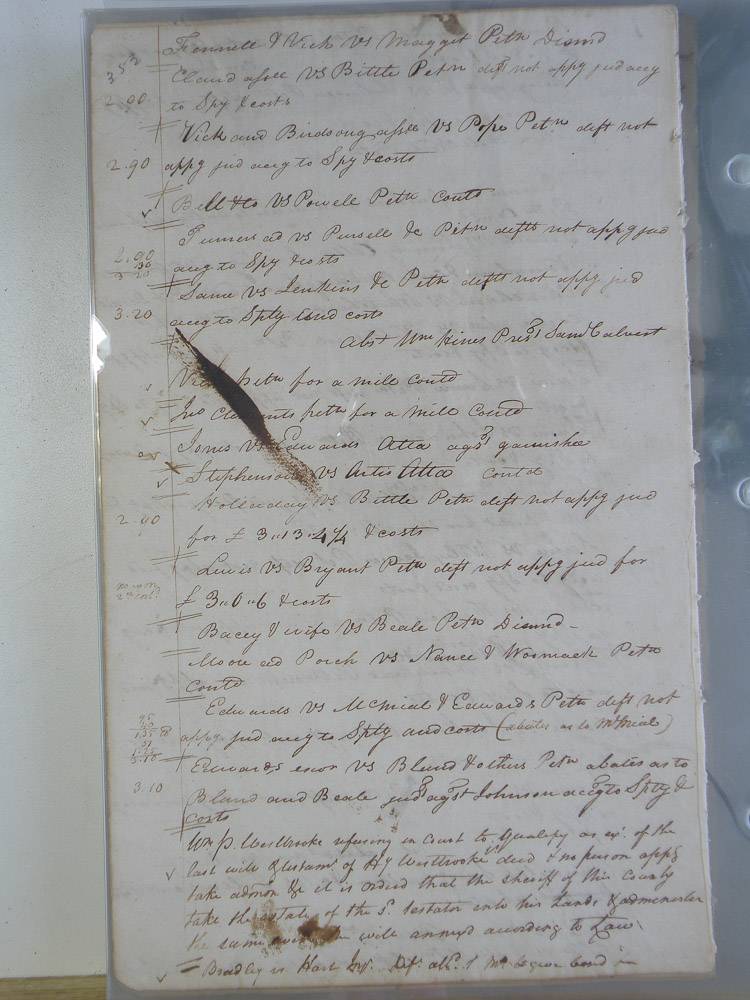 Fennell & Vick vs Magget Petn Dismd
353
Claud assee vs Bittle Petn deft not appg jud accg
2.90 to Spy & costs
Vick and Birdsong assee vs Pope Petn deft not
2.90 appg jud accg to Spy & costs
Bell & Co vs Powell Petn Contd
Turners ad vs Pursell &c Petn defts not appg jud
2.90 accg to Spy & costs
30
3 20
Same vs Jenkins &c Petn defts not appg jud
3.20 accg to Spty and costs
abst Wm Hines Prest Saml Calvert
Petn for a mill contd
Jno Clements petn for a mill Contd
Jones vs Edwards Atta agst garnishee
Stephenson vs Artis Atta Contd
Holladay vs Bittle Petn deft not appg jud
2.90 for £ 3.13.4¼ & costs
Lewis vs Bryant Petn deft not appg jud for
£ 3.0.6 & costs
Bacey & wife vs Beale Petn Dismd
Moore ad Porch vs Nance & Wommack Petn
Contd
Edwards vs McNiel & Edwards Petn deft not
appg jud accg to Spty and costs (abates as to McNeial)
Edwards exor vs Bland & others Petn abates as to
3.10 Bland and Beale judt agst Johnson accg to Spty &
costs
Wm P. Westbrooke refusing in Court to Qualify as exr. of the
last will & testamt. of Hy Westbrooke decd & no person appg
take admon &c it is ordered that the sheriff of this County
take the estate of the sd. testator into his hands & administer
the same will annexed according to Law
Bradley vs Hart